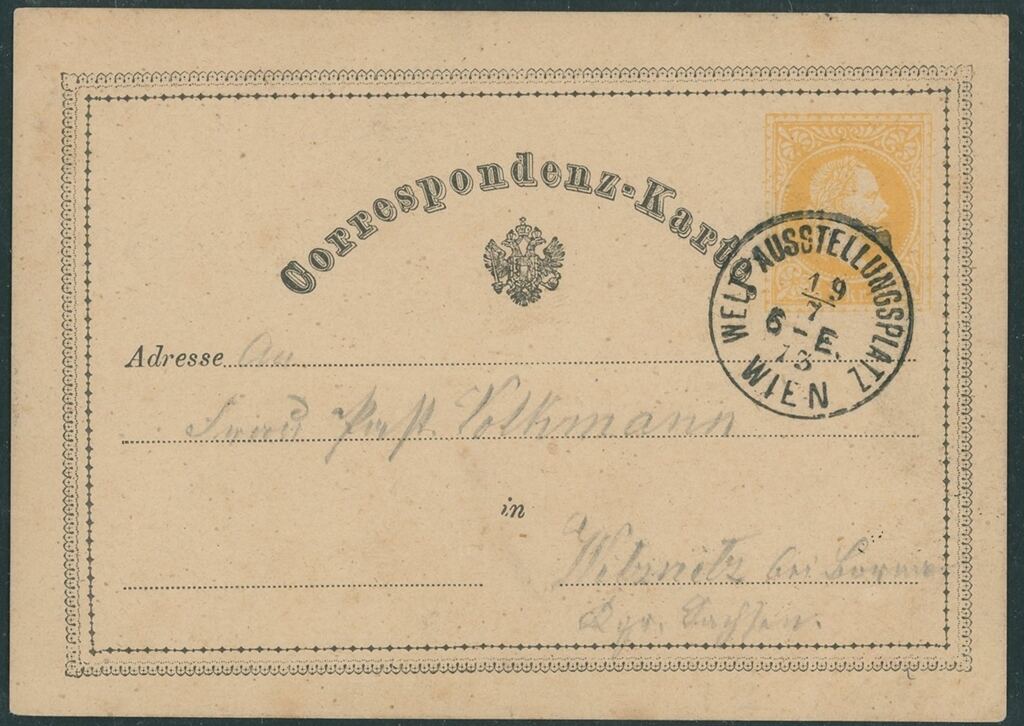 Correspondenz-Karte
WELTAUSSTELLUNGSPLATZ
19/7
6-E.
73
WIEN
Adresse An
Frau Past. Volkmann
in
bei
Kgr. Sachsen.